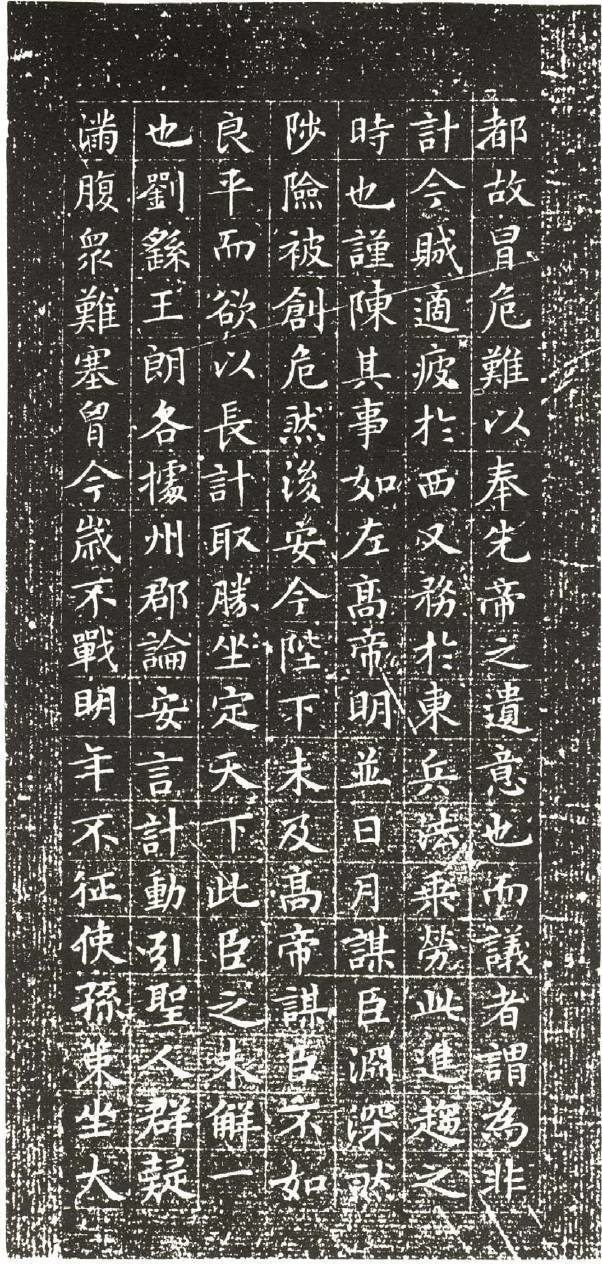 都故冒危難以奉先帝之遺意也而議者謂為非
計今賊適疲於西又務於東兵法乘勞此進趨之
時也謹陳其事如左高帝明並日月謀臣淵深然
陟險被創危然後安今陛下未及高帝謀臣不如
良平而欲以長計取勝坐定天下此臣之未解一
也劉繇王朗各據州郡論安言計動引聖人群疑
滿腹眾難塞胷今歲不戰明年不征使孫策坐大